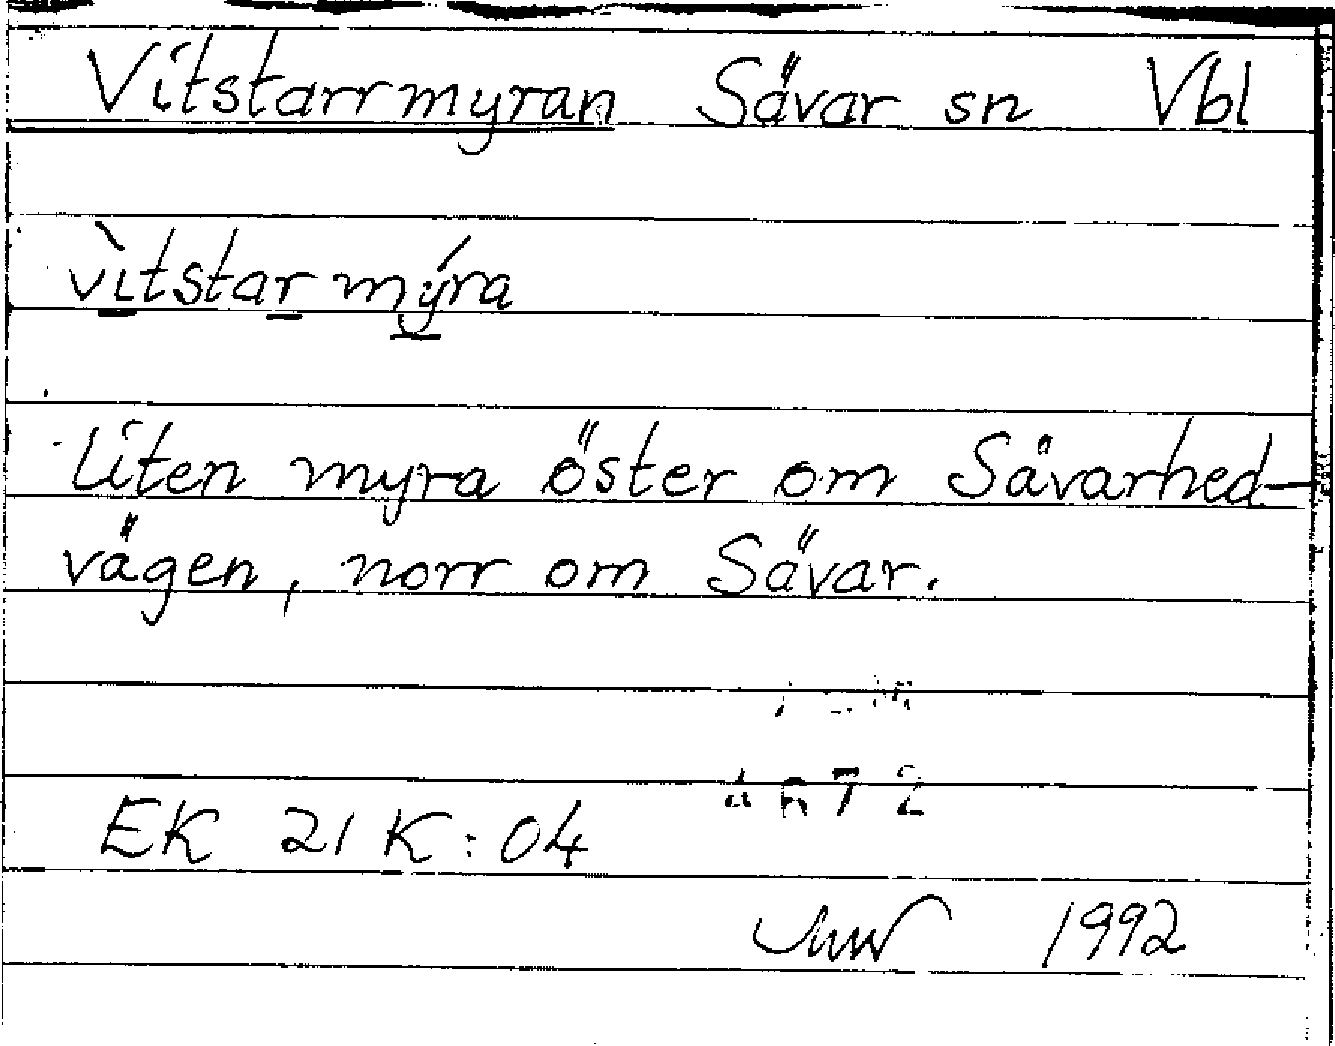 Vitstarrmyran Sävar sn Vbl
vìtstarmýra
Liten myra öster om Sävarhed-
vägen, norr om Sävar.
EK 21 K:04
1992